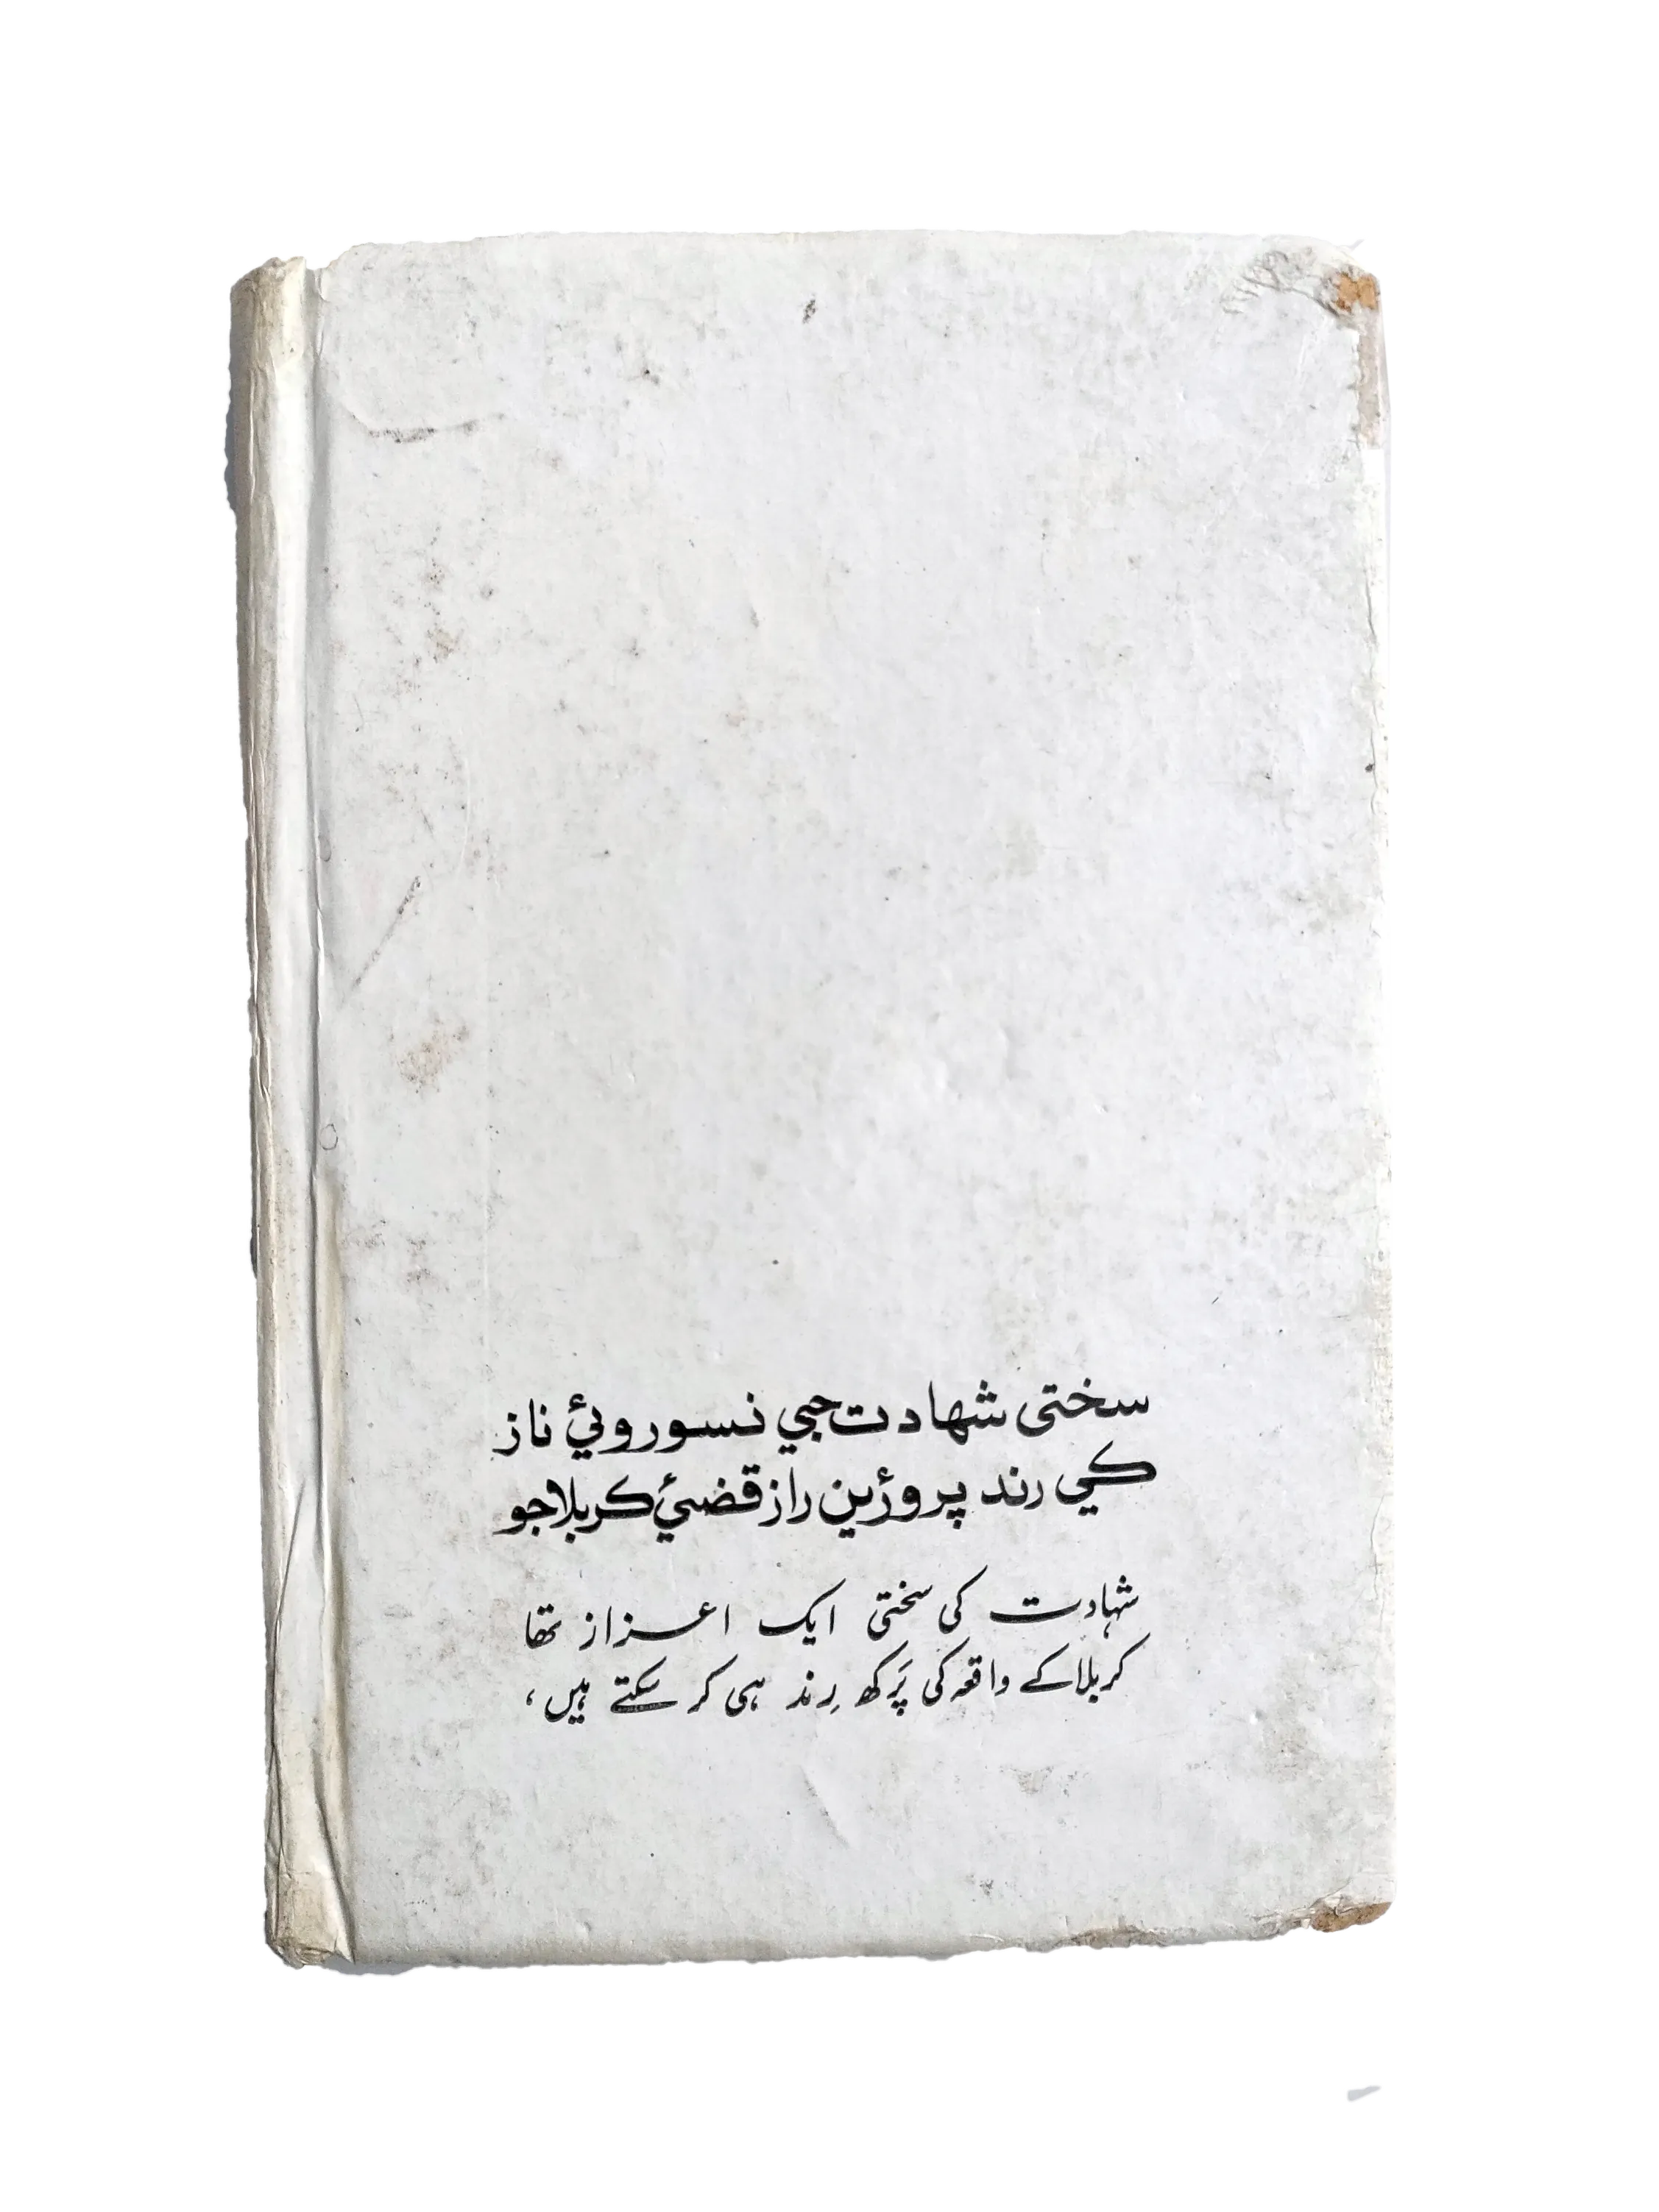 سختي شھادت جي نسوروئي ناز
ڪي رند پروڙين راز قضيئي ڪربلا جو
شہادت کی سختی ایک اعزاز تھا
کربلا کے واقعہ کی پَرکھ رِند ہی کر سکتے ہیں،